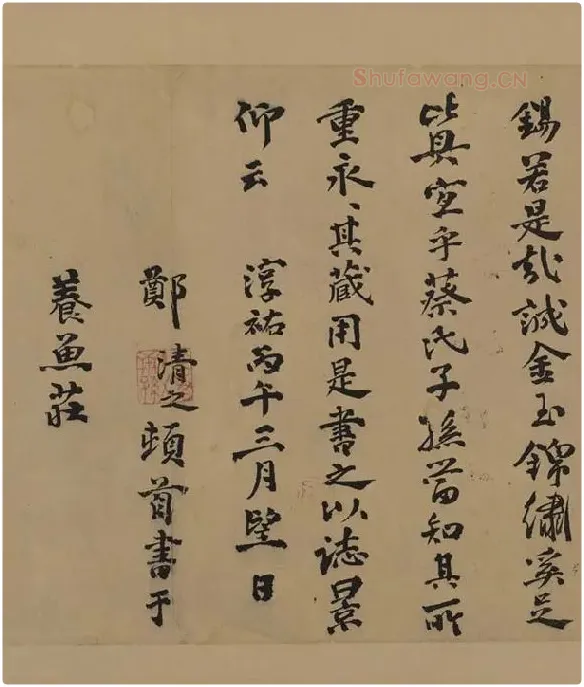 Shufawang.CN
錫若是哉誠金玉錦繡奚足
比其宜乎蔡氏子孫當知其所
重永、其藏用是書之以誌景
仰云 淳祐丙午三月望日
鄭清之頓首書于
養魚莊